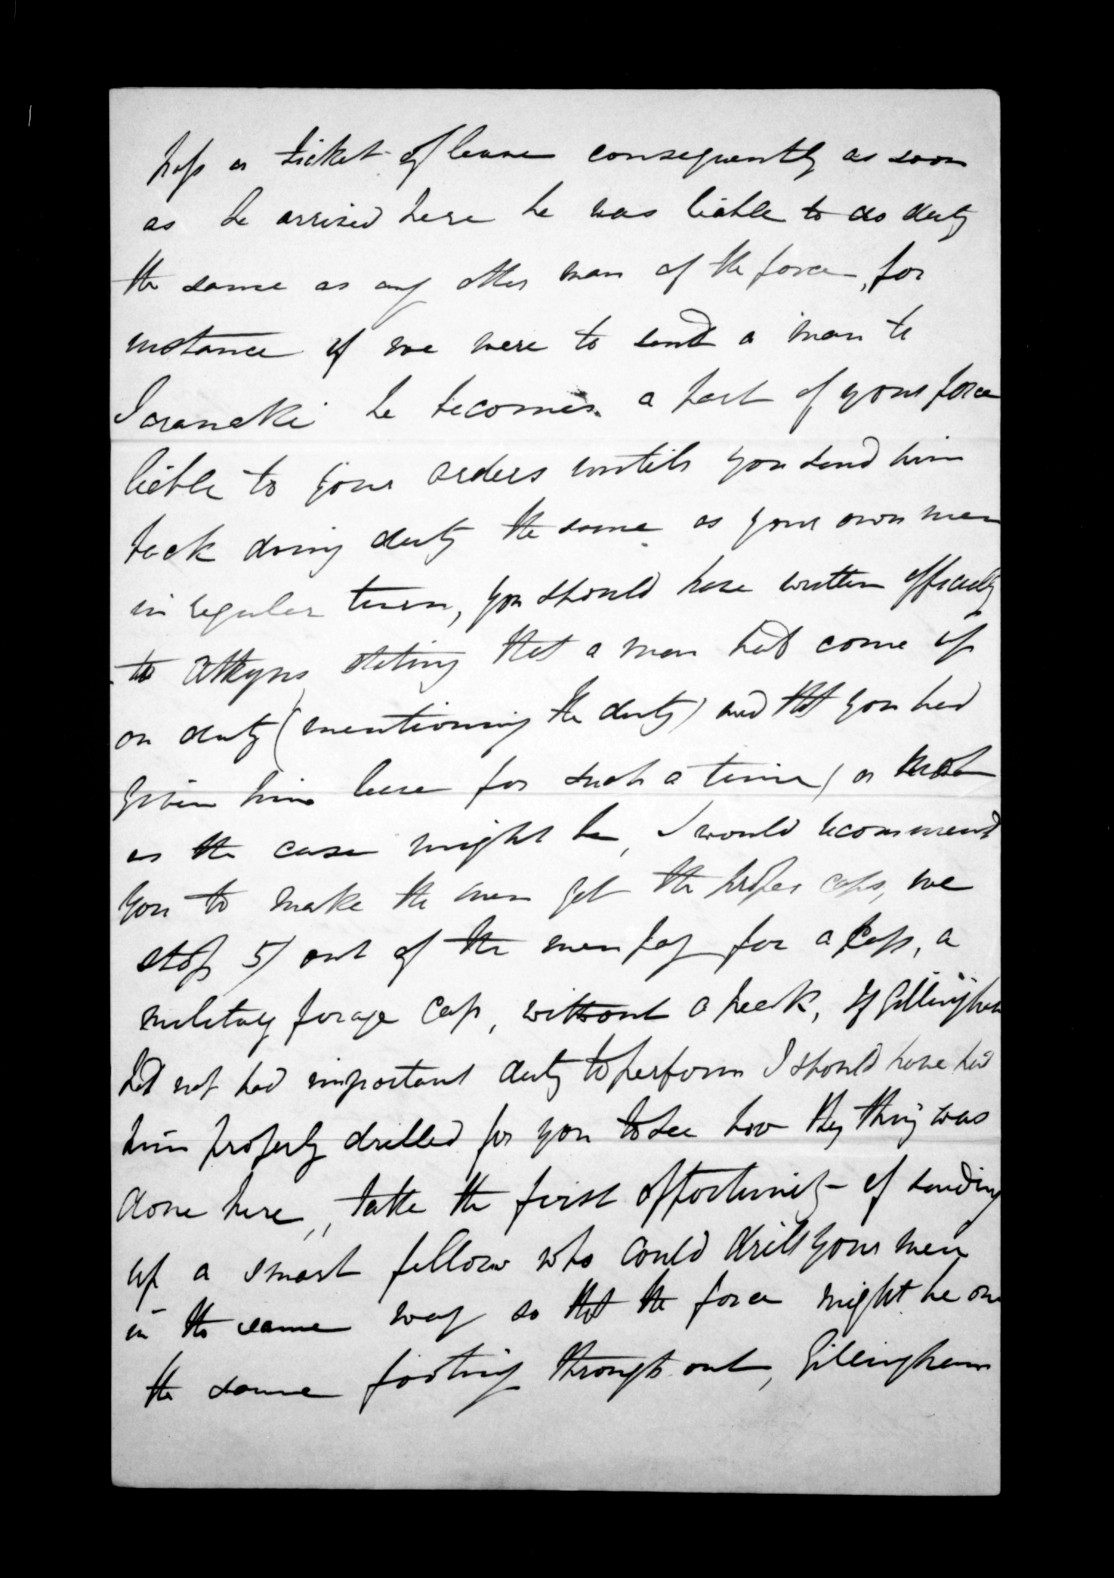 pass or ticket of leave consequently as soon
as he arrived here he was liable to do duty
the same as any other man of the force, for
instance if we were to send a man to
Taranaki he becomes a part of your force
liable to your orders until you send him
back doing duty the same as your own men
in regular turn, you should have written officially
to Atkyns stating that a man had come up
on duty (mentioning the duty) and that you had
given him leave for such a time, or not
as the case might be, I would recommend
you to make the men get the proper caps, we
stop 5/ out of the men pay for a cap, a
military forage cap, without a peak, If Gillingham
had not had important duty to perform I should have had
him properly drilled for you to see how the thing was
done here, take the first opportunity of sending
up a smart fellow who could drill your men
in the same way so that the force might be on
the same footing throughout, Gillingham